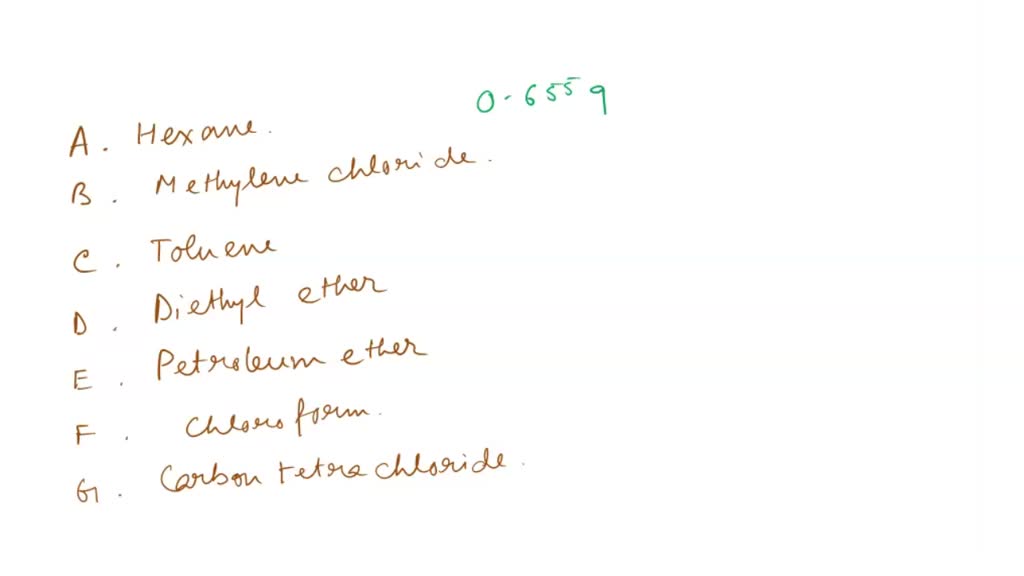 0.655 g
A. Hexane.
B. Methylene chloride.
C. Toluene
D. Diethyl ether
E. Petroleum ether
F. Chloroform.
G. Carbon tetrachloride.